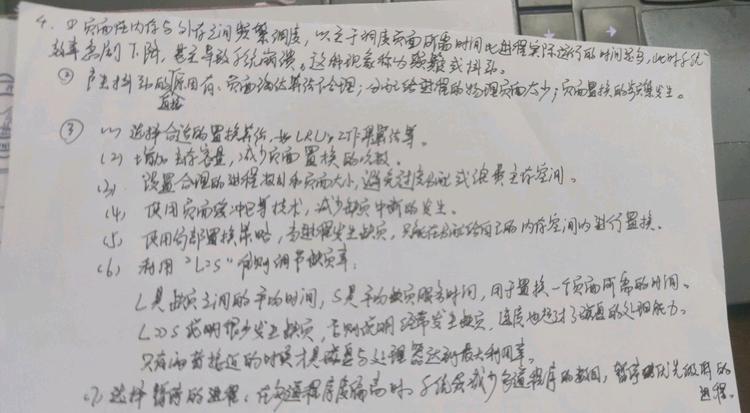 4. ① 页面在内存与外存之间频繁调度，以至于调度页面所需时间比进程实际运行的时间还多，此时系统
效率急剧下降，甚至导致系统崩溃。这种现象称为颠簸或抖动。
② 产生抖动的原因有：页面淘汰算法不合理；分配给进程的物理页面太少；页面置换的频繁发生。
③ (1) 选择合适的置换算法，如LRU、工作集算法等。
(2) 增加主存容量，减少页面置换的次数。
(3) 设置合理的进程数和页面大小，避免过度分配或浪费主存空间。
(4) 使用页面缓冲等技术，减少缺页中断的发生。
(5) 使用局部置换策略，当进程发生缺页，只能在分配给自己的内存空间内进行置换。
(6) 利用"L=S"准则调节缺页率：
L是缺页之间的平均时间，S是平均缺页服务时间，用于置换一个页面所需的时间。
L>S 说明很少发生缺页，否则说明经常发生缺页，速度也超过了磁盘的处理能力。
只有两者接近的时候才是磁盘与处理器达到最大利用率。
(7) 选择暂停的进程：在多道程序度偏高时，系统会减少多道程序的数目，暂停优先级低的
进程。